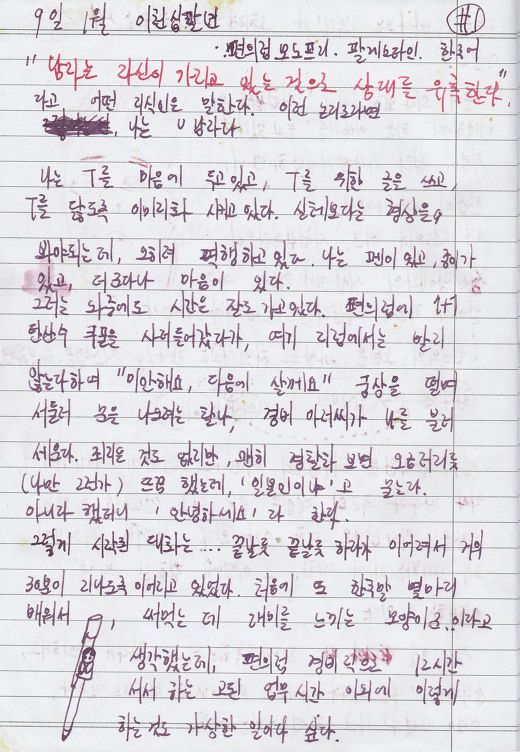 9일 1월 이천십팔년 #1
· 편의점 오도프리. 팔게요라인. 한국어
"남자는 자신이 가지고 있는 걸으로 상대를 유혹한다",
라고, 어떤 지식인은 말한다. 이런 논리로라면
, 나는 U 남자다
나는 T를 마음에 두고 있고, T를 위한 글을 쓰고,
T를 닮도록 이미지화 시키고 있다. 실체보다는 형상을
봐야되는데, 오히려 역행하고 있다. 나는 펜이 있고, 종이가
있고, 더군다나 마음이 있다.
그러는 와중에도 시간은 잘도 가고 있다. 편의점에 1+1
탄산수 쿠폰을 사러들어갔다가, 여기 지점에서는 팔지
않는다하며 "미안해요, 다음에 살께요" 궁상을 떨며
서둘러 문을 나스려는 찰나, 경비 아저씨가 나를 불러
세운다. 죄지은 것도 없지만, 괜히 경찰차 보면 오금저리듯
(나만 그런가) 뜨끔 했는데, '일본인이냐'고 묻는다.
아니라 했더니 '안녕하세요'라 한다.
그렇게 시작된 대화는... 끝날듯 끝날듯 하다가 이어져서 거의
30분이 지나도록 이어지고 있었다. 처음에 또 한국말 몇마디
배워서, 써먹는 데 재미를 느끼는 모양이군..이라고
생각했는데, 편의점 경비직으로 12시간
서서 하는 고된 업무시간 이외에 이렇게
하는것도 가상한 일이다 싶다.